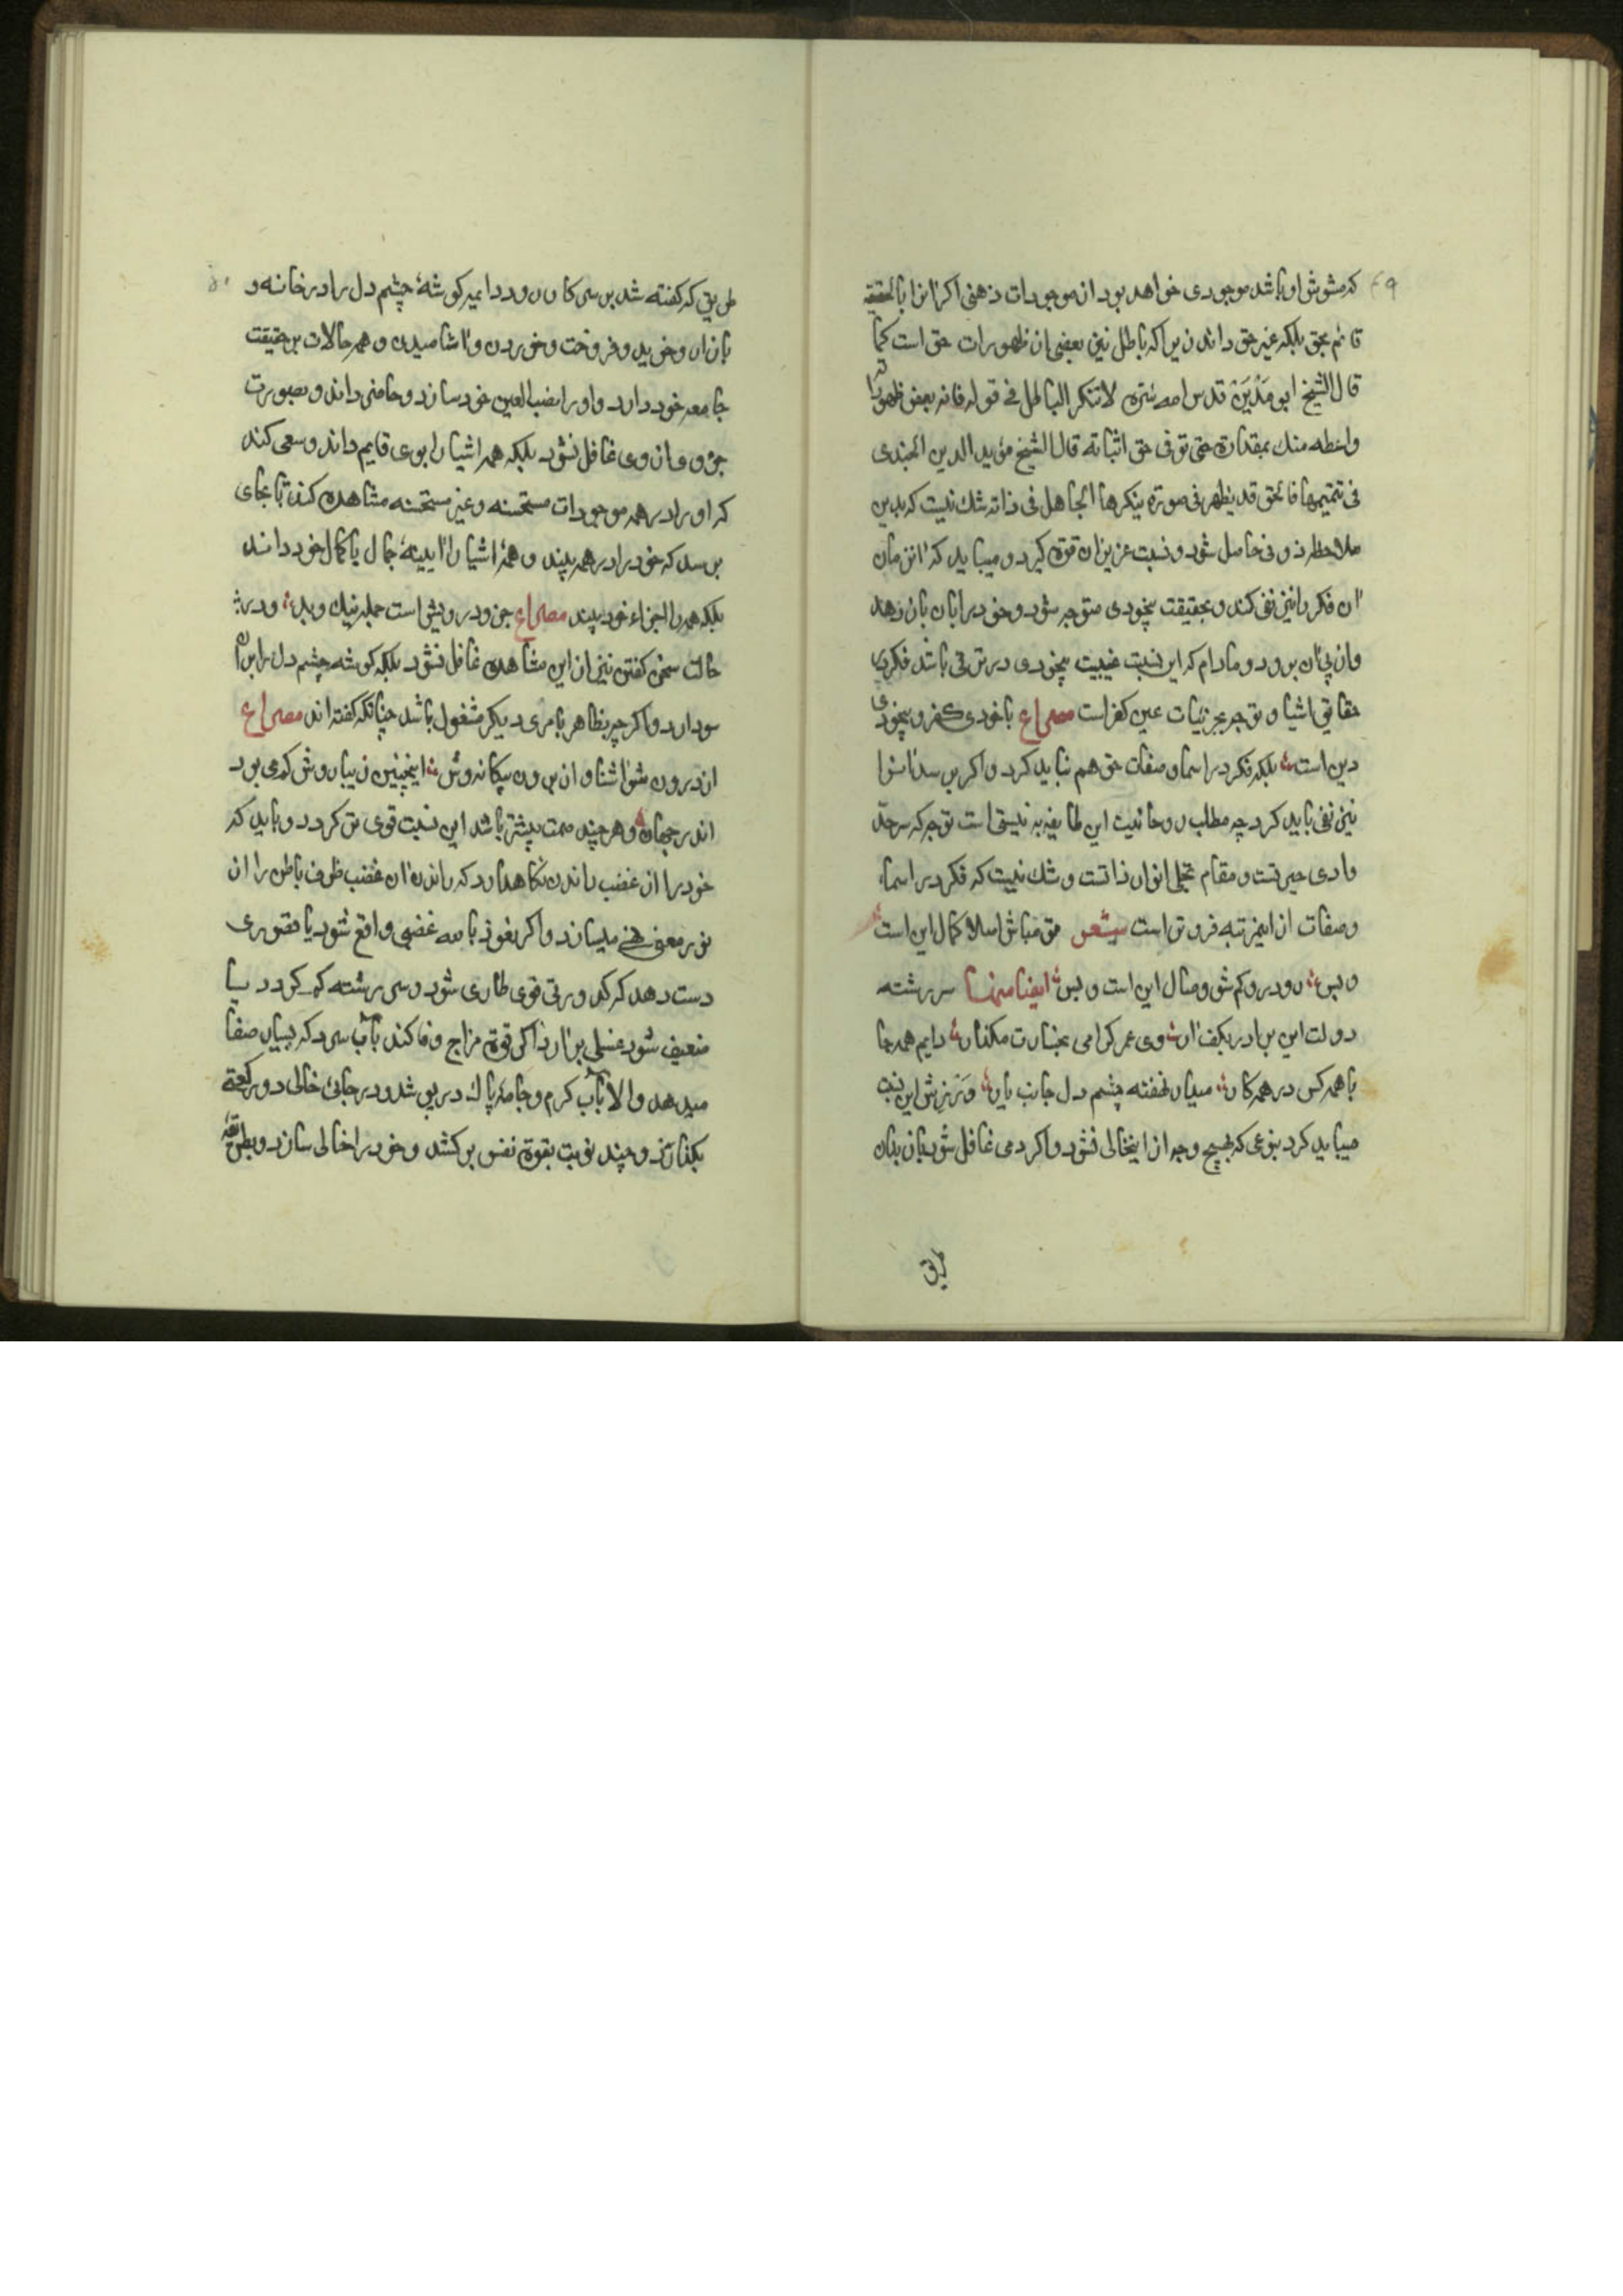 ۴۹
که مشوش او باشد موجودی خواهد بود از موجودات ذهنی اکر انرا بالحقیقه
قائم بحق بلکه غیر حق داند زیرا که باطل نیز بعضی از ظهورات حق است کما
قال الشیخ ابو مَدْیَنَ قدس الله سره لا تنکر الباطل فی طوره فانه بعض ظهوراته
واعطه منك بمقداره حتی توفی حق اثباته قال الشیخ مؤید الدین الجندی
فی تتمیمها فالحق قد یظهر فی صورة ینکرها الجاهل فی ذاته شك نیست که بدین
ملاحظه ذوقی حاصل شود و نسبت عزیزان قوة کیرد و میباید که انزمان
ان فکر را نیز نفی کند و بحقیقت بیخودی متوجه شود و خود را بان باز دهد
وان پی ان برود و مادام که این نسبت غیبت بیخودی در ترقی باشد فکر در
حقایق اشیا و توجه بجزئیات عین کفر است مصراع با خودی کفر و بیخودی
دین است بلکه فکر در اسما و صفات حق هم نباید کرد و اکر برسد انرا
نیز نفی باید کرد چه مطلب روحانیت این طایفه به نیستی است توجه که سرحد
وادی حیرتست و مقام تجلی انوار ذاتست و شك نیست که فکر در اسماء
وصفات از اینمرتبه فروتر است شعر تو مباش اصلا کمال این است
وبس رو درو کم شو وصال این است و بس ایضا منها سر رشته
دولت ای برادر بکف ار وی عمر کرامی بخسارت مکذار دایم همه جا
با همه کس در همه کار میدار نهفته چشم دل جانب یار ورزش این نسبت
میباید کرد بنوعی که بهیچ وجه از اینحالی نشود و اکر دمی غافل شود باز بدان
طریق
۵۰
طریق که کفته شد بر سر کار رود دایم کوشهٔ چشم دل را در خانه و
بازار و خرید و فروخت و خوردن و اشامیدن و همه حالات بر حقیقت
جامعه خود دارد و او را نصب العین خود سازد و حاضر داند و بصورت
جزوی از وی غافل نشود بلکه همه اشیا را بوی قایم داند و سعی کند
که او را در همه موجودات مستحسنه و غیر مستحسنه مشاهده کند تا بجای
برسد که خود را در همه بیند و همهٔ اشیا را ایینهٔ جمال با کمال خود داند
بلکه همه را اجزاء خود بیند مصراع جزو درویش است جمله نیك و بد و در
حالت سخن کفتن نیز از این مشاهده غافل نشود بلکه کوشه چشم دل را بران
سو دارد و اکر چه بظاهر بامری دیکر مشغول باشد چنانکه کفته اند مصراع
از درون شو اشنا و از برون بیکانه وش اینچنین زیبا روش کم می بود
اندر جهان و هر چند صمت بیشتر باشد این نسبت قوی تر کردد و باید که
خود را از غضب راندن نکاه دارد که راندن غضب ظرف باطن را از
نور معنی تهی میسازد و اکر نعوذ بالله غضبی واقع شود یا قصوری
دست دهد که کدورتی قوی طاری شود و سر رشته کم کردد یا
ضعیف شود غسلی برارد اکر قوة مزاج وفا کند باب سرد که بسیار صفا
میدهد والا باب کرم و جامهٔ پاك در پوشد و در جایٔ خالی دو رکعة
بکذارد و چند نوبت بقوة نفس برکشد و خود را خالی سازد و بطریقه